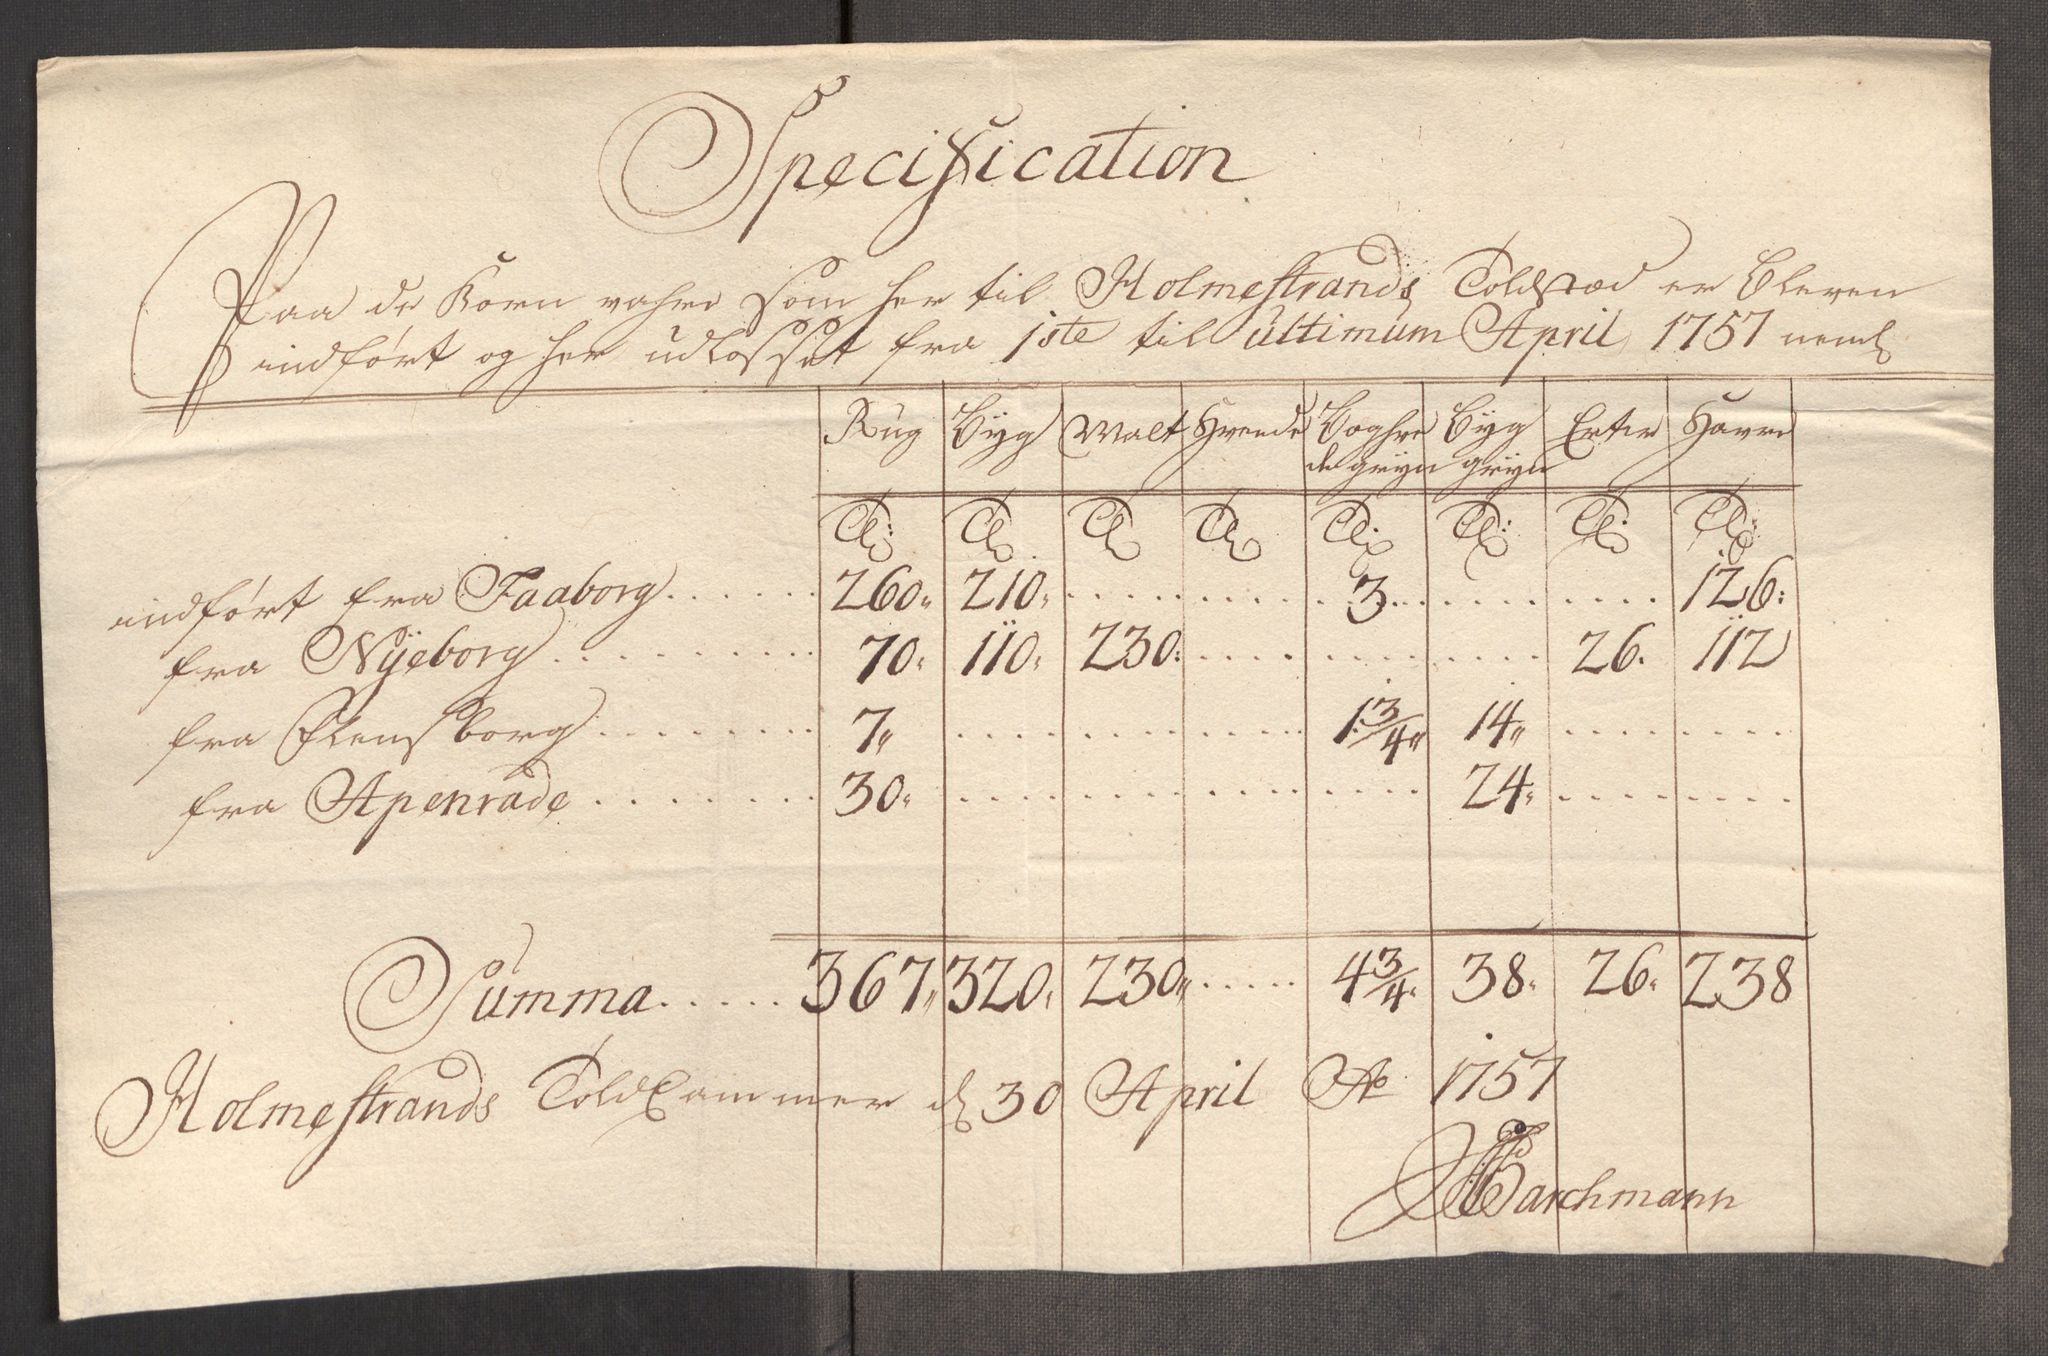 Specification
Paa de Korn vahre som her til Holmestrands Toldstæd er bleven
indført og her udlosset fra 1ste til ultimum April 1757 neml
Rug Byg Malt Hvede Boghve Byg Erter Havre
de gryn gryn
Tl: Tl Tl Tl Tl: Tl: Tl: Tl:
indført fra Faaborg . . . . . . 260 210 . . . . . . . . . 3 . . . . . . . . . 126
fra Nÿeborg . . . . . . . . 70 110 230 . . . . . . . . . 26 112
fra Flensborg . . . . . . . 7 . . . . . . . . . 1 3/4 14 . . . . . . .
fra Apenrade . . . . . . . 30 . . . . . . . . . . . . 24 . . . . . . .
Summa . . . . . 367 320 230 . . . . . 4 3/4 38 26 238
Holmestrands Told Cammer d 30 April Ao 1757
Barchmann